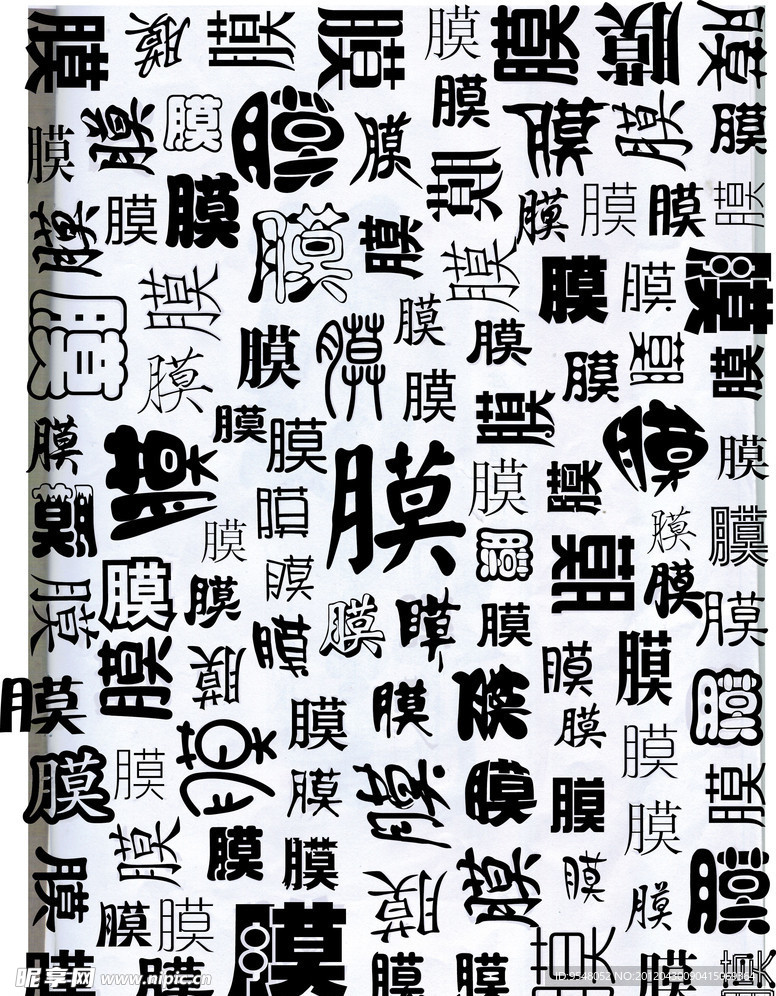 膜膜膜膜膜膜膜膜
膜膜膜膜膜膜膜膜膜
膜膜膜膜膜膜膜膜膜膜
膜膜膜膜膜膜
膜膜膜膜膜膜膜膜膜
膜膜膜膜膜膜膜
膜膜膜膜膜膜膜膜膜
膜膜膜膜膜膜膜
膜膜膜膜膜膜膜膜
膜膜膜膜膜膜膜
膜膜膜膜膜膜膜膜
膜膜膜膜膜膜膜膜
膜膜膜膜
膜膜膜膜膜膜膜膜
昵享网 www.nipic.cn
ID:9548052 NO:20120430090415069364